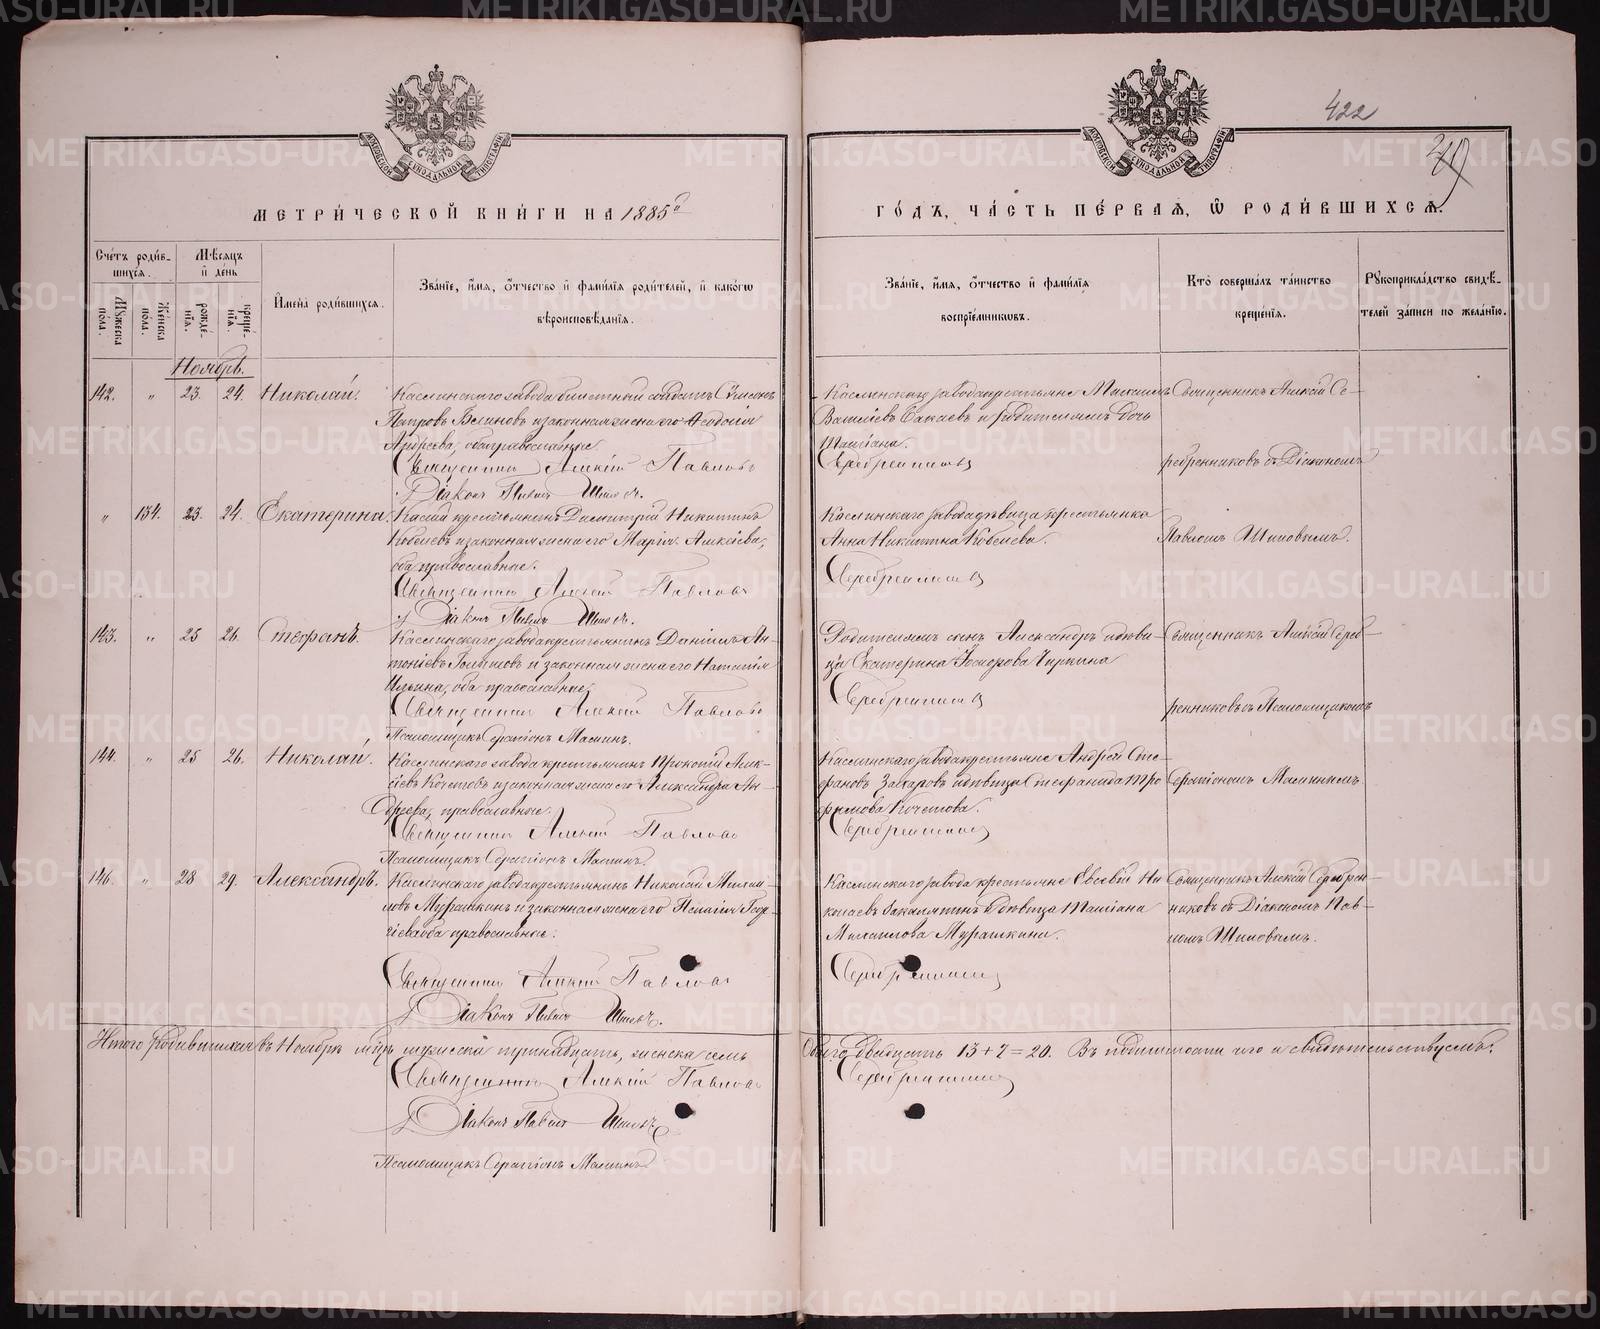 422
МЕТРИЧЕСКОЙ КНИГИ НА 1885й
ГОДЪ, ЧАСТЬ ПЕРВАЯ, Ѡ РОДИВШИХСЯ.
Счетъ родившихся.
Мужеска пола.
Женска пола.
Мѣсяцъ и день
рожденія.
крещенія.
Имена родившихся.
Званіе, имя, отчество и фамилія родителей, и какогѡ
вѣроисповѣданія.
Званіе, имя, отчество и фамилія
воспріемниковъ.
Кто совершалъ таинство
крещенія.
Рукоприкладство свидѣтелей записи по желанію.
Ноябрь.
142. " 23. 24. Николай.
Каслинскаго завода билетный солдатъ Сѵмеонъ
Петровъ и законная жена его Ѳеодосія
Андреева, оба православные
Священникъ Алексій Павловъ
Діаконъ Павелъ Шиловъ.
Каслинскаго завода крестьяне Михаилъ
Василіевъ и родителямъ дочь
Татіана.
Серебренниковъ
Священникъ Алексій Се-
ребренниковъ съ Діакономъ
" 134. 23. 24. Екатерина.
крестьянинъ Димитрій Никитинъ
Кобелевъ и законная жена его Марія Алексіева,
оба православные.
Священникъ Алексій Павловъ
Діаконъ Павелъ Шиловъ.
Каслинскаго завода дѣвица крестьянка
Анна Никитина Кобелева.
Серебренниковъ
Павломъ Шиловымъ.
143. " 25 26. Стефанъ.
Каслинскаго завода крестьянинъ Даніилъ Ан-
тоніевъ и законная жена его Наталія
Ильина, оба православные.
Священникъ Алексій Павловъ
Псаломщикъ Серапіонъ Маминъ.
Родителямъ сынъ Александръ и дѣви-
ца Екатерина Ѳеодорова Чиркина
Серебренниковъ
Священникъ Алексій Сереб-
ренниковъ съ Псаломщикомъ
144. " 25 26. Николай.
Каслинскаго завода крестьянинъ Прокопій Алек-
сіевъ Кочетовъ и законная жена его Александра Ан-
дреева, православные.
Священникъ Алексій Павловъ
Псаломщикъ Серапіонъ Маминъ.
Каслинскаго завода крестьяне Андрей Сте-
фановъ Захаровъ и дѣвица Стефанида Тро-
фимова Кочетова.
Серебренниковъ
Серапіономъ Маминымъ
146. " 28 29. Александръ.
Каслинскаго завода крестьянинъ Николай Михаи-
ловъ Мурашкинъ и законная жена его Пелагія Геор-
гіева, оба православные.
Священникъ Алексій Павловъ
Діаконъ Павелъ Шиловъ.
Каслинскаго завода крестьяне Евсевій Ни-
колаевъ Закалятинъ и дѣвица Татіана
Михаилова Мурашкина.
Серебренниковъ
Священникъ Алексій Серебрен-
никовъ съ Діакономъ Пав-
ломъ Шиловымъ.
Итого родившихся въ Ноябрѣ м-цѣ мужеска тринадцать, женска семь
Обоего двадцать 13+7=20. Въ подлинности чего и свидѣтельствуемъ:
Священникъ Алексій Павловъ
Серебренниковъ
Діаконъ Павелъ Шиловъ
Псаломщикъ Серапіонъ Маминъ
METRIKI.GASO-URAL.RU